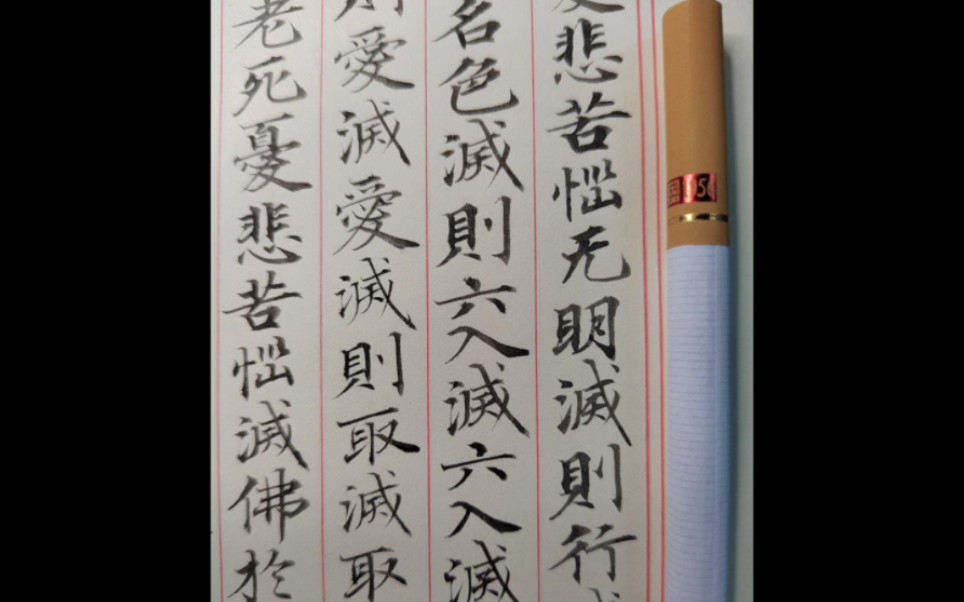 悲苦惱无明滅則行
名色滅則六入滅六入滅
愛滅愛滅則取滅取
老死憂悲苦惱滅佛於